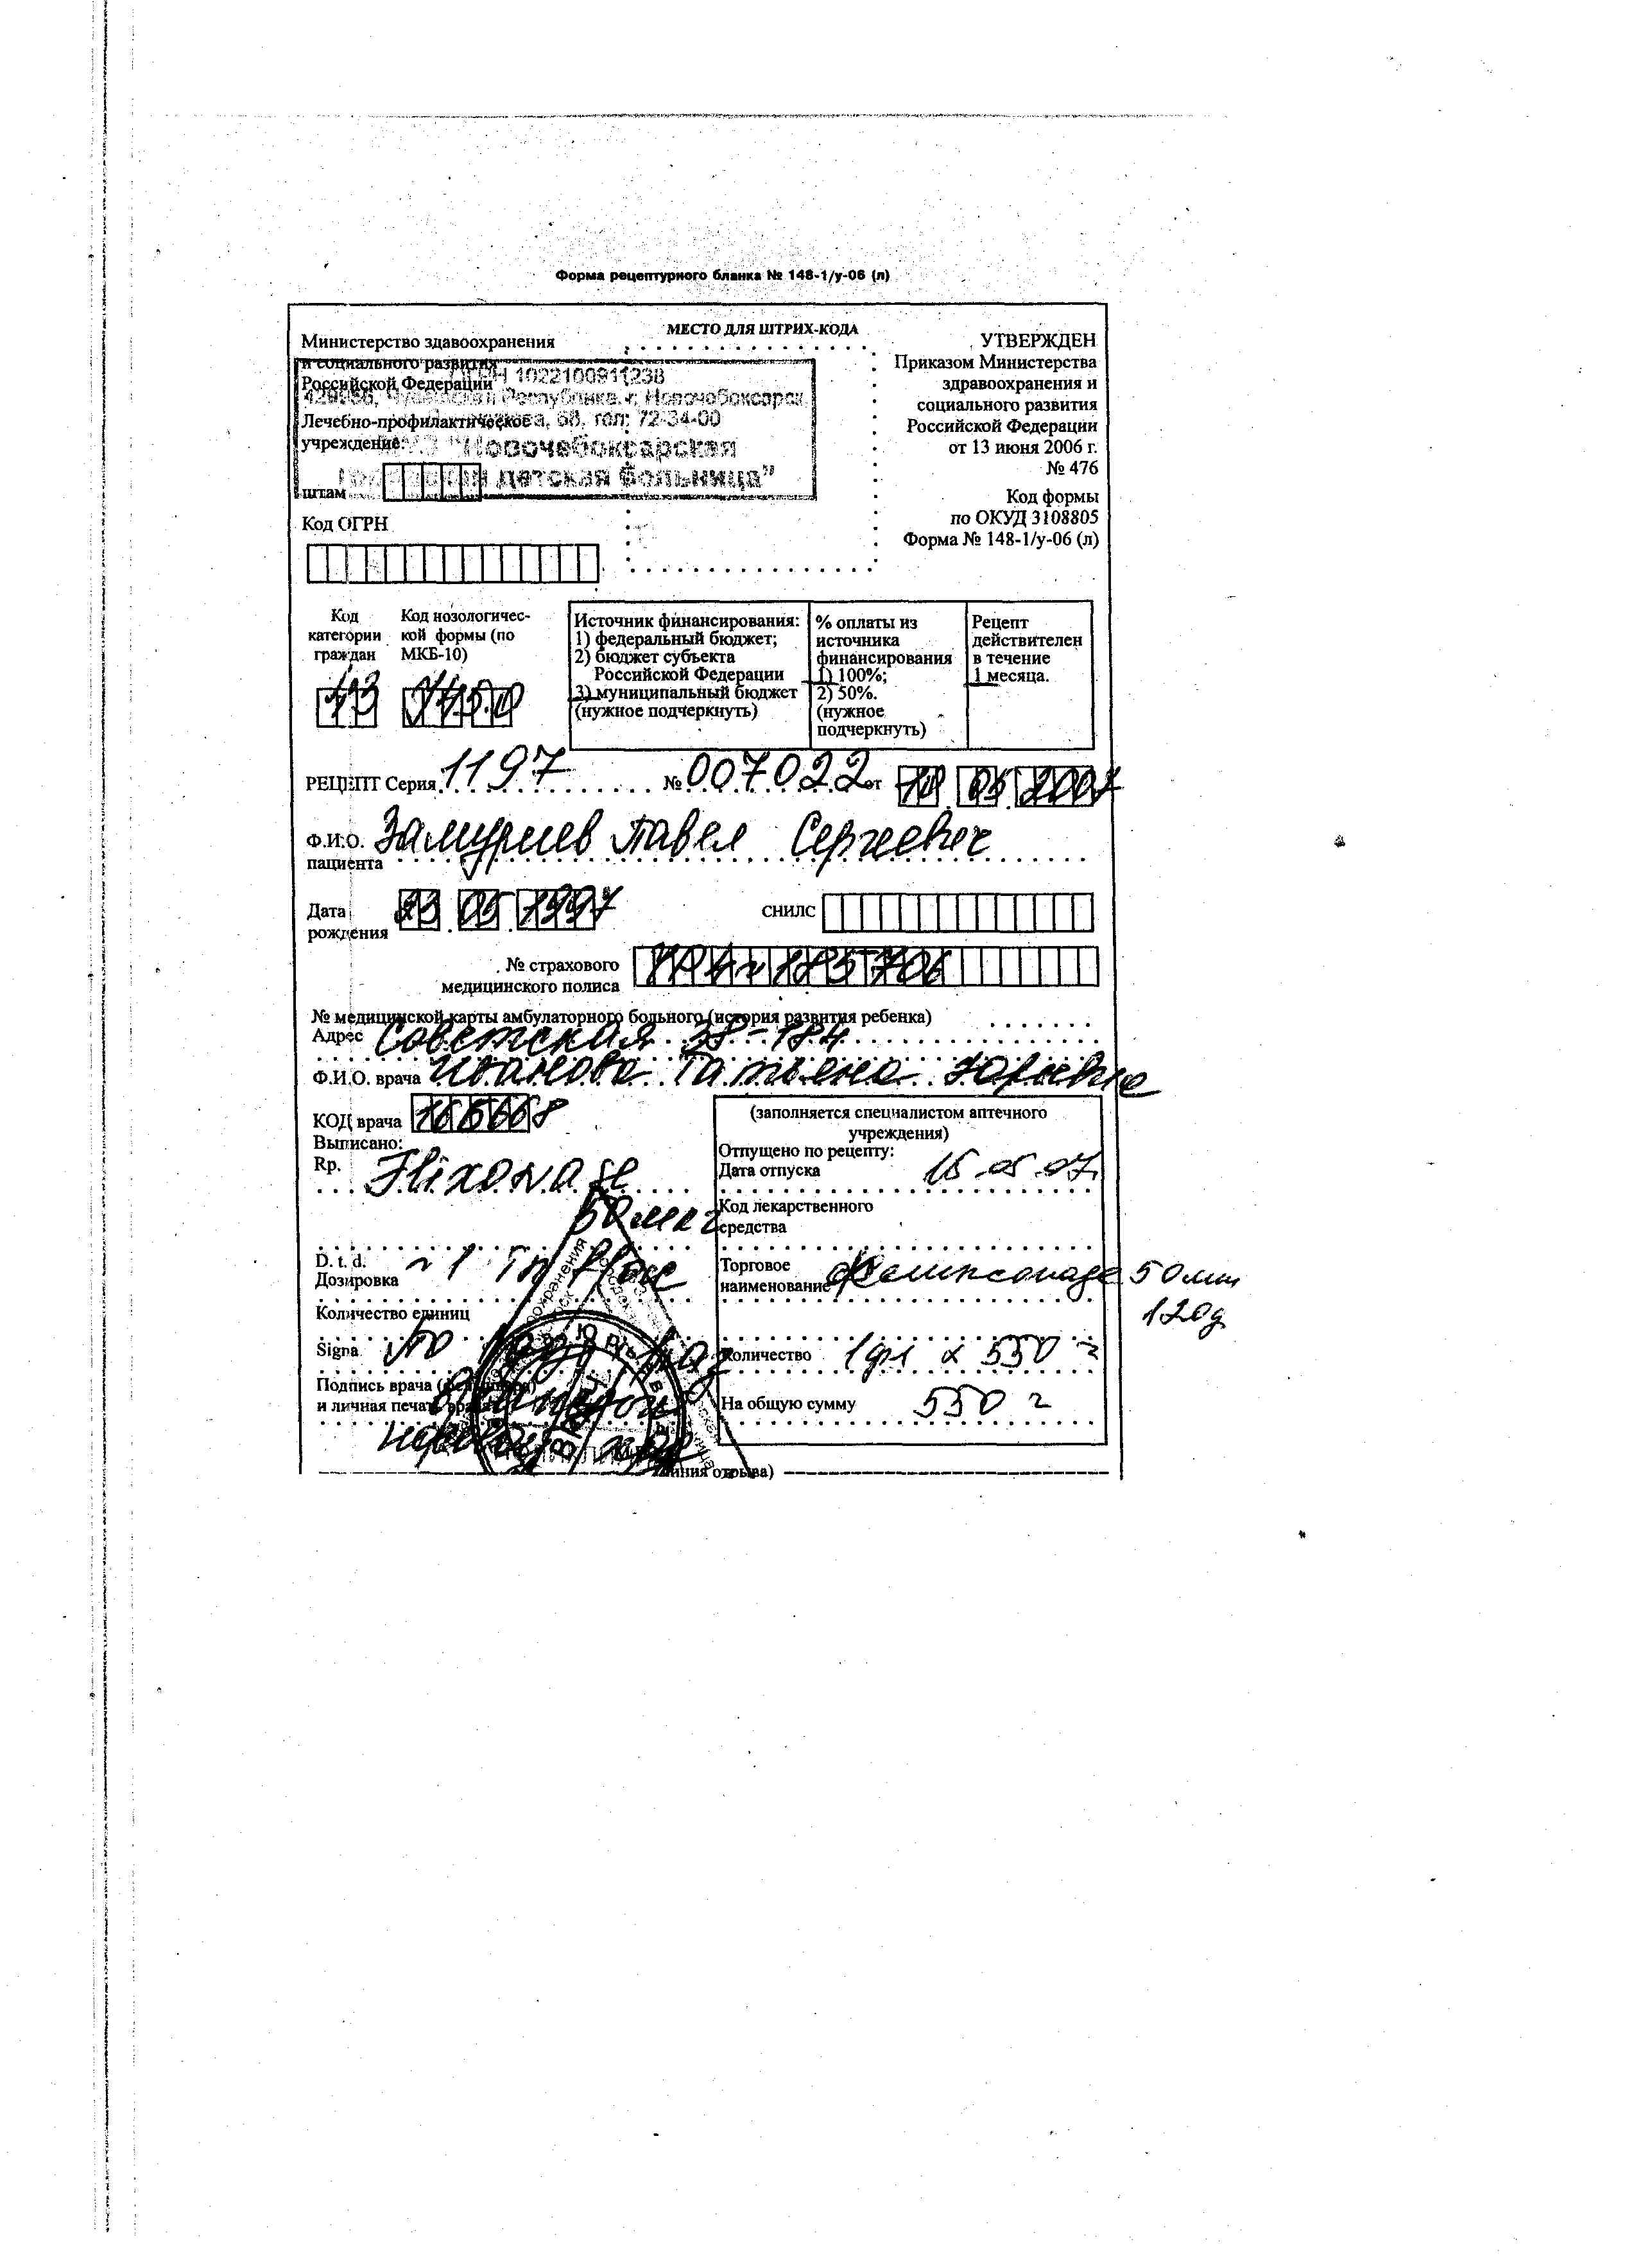 Форма рецептурного бланка № 148-1/у-06 (л)
МЕСТО ДЛЯ ШТРИХ-КОДА
Министерство здавоохранения
и социального развития
Российской Федерации
1022100911238
Республика, г. Новочебоксарск
Лечебно-профилактическое
68, тел: 72-34-00
учреждение:
"Новочебоксарская
детская больница"
штам
Код ОГРН
УТВЕРЖДЕН
Приказом Министерства
здравоохранения и
социального развития
Российской Федерации
от 13 июня 2006 г.
№ 476
Код формы
по ОКУД 3108805
Форма № 148-1/у-06 (л)
Код
категории
граждан
Код нозологичес-
кой формы (по
МКБ-10)
Источник финансирования:
1) федеральный бюджет;
2) бюджет субъекта
Российской Федерации
3) муниципальный бюджет
(нужное подчеркнуть)
% оплаты из
источника
финансирования
1) 100%;
2) 50%.
(нужное
подчеркнуть)
Рецепт
действителен
в течение
1 месяца.
РЕЦЕПТ Серия 1197 № 007022 от 10 05 2007
Ф.И.О. Павел Сергеевич
пациента
Дата
рождения
05 1997
СНИЛС
№ страхового
медицинского полиса
№ медицинской карты амбулаторного больного (история развития ребенка)
Адрес Советская 38-184
Ф.И.О. врача Иванова Татьяна Юрьевна
КОД врача
Выписано:
Rp. Flixonase
50 мкг
D. t. d. n 1 in flac
Дозировка
Количество единиц
Signa. по
Подпись врача
и личная печать врача
(заполняется специалистом аптечного
учреждения)
Отпущено по рецепту:
Дата отпуска 15.05.07
Код лекарственного
средства
Торговое
наименование Фликсоназе 50 мкг
120д
Количество 1 фл х 550
На общую сумму 550
(линия отрыва)